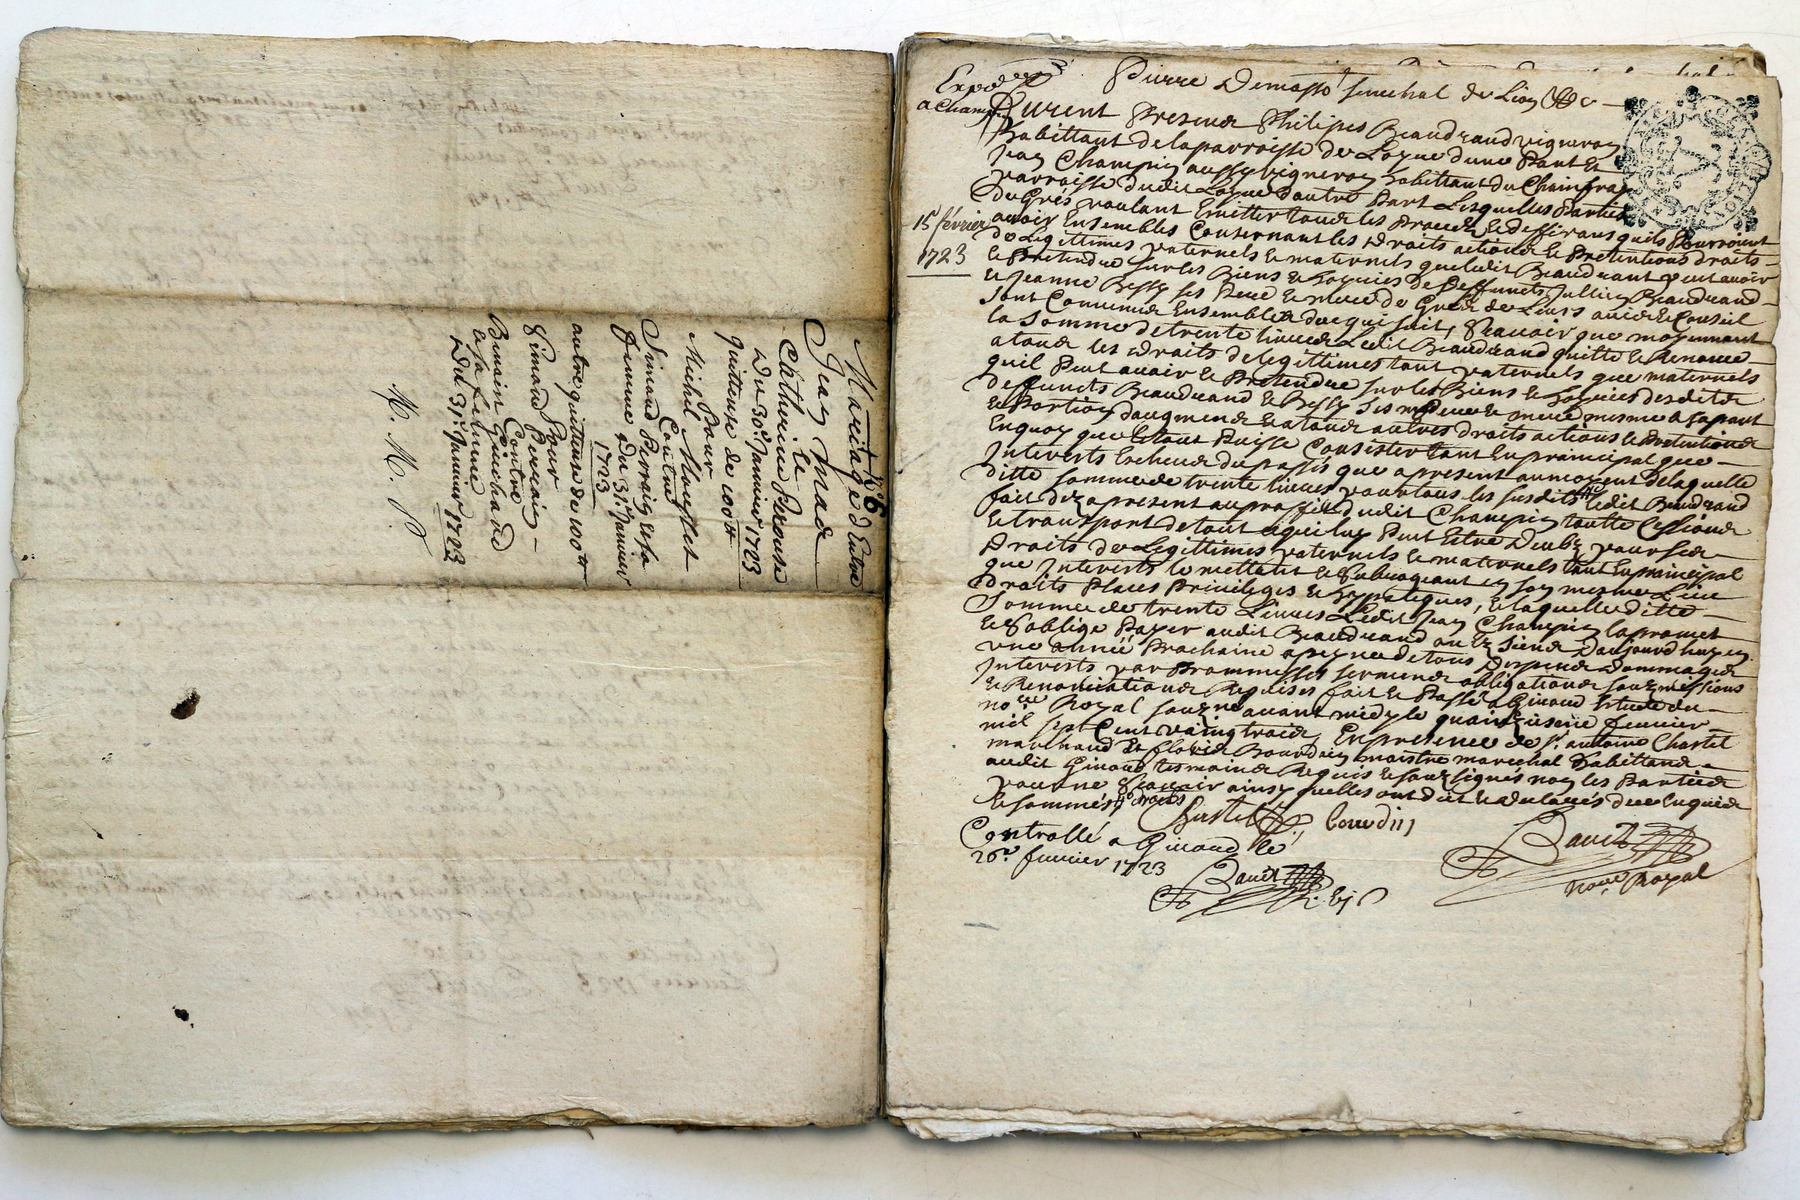 N° 6
Mariage d'Entre
Jean
et
Catherine
Du 30e Janvier 1723
quittance de 100 tt
Michel
Pour
Contre
Simond Perrais et sa
femme Du 31e Janvier
1723
autre quittance de 100 tt
Pour
Simond Perrais
Contre
Benoist Guichard
et sa femme
Du 31e Janvier 1723
M. M. P.
Expd
a Champin
15 février
1723
Pierre Demasso senechal de Lion &c
Furent Presend Philipes Beaudrand vigneron
habittant de la parroisse de Loyre dune Part Et
Jean Champin aussy vigneron habittant du
parroisse dudit Loyre dautre Part Lesquelles Parties
De Grés voulant Emitter toud les Proced et differans quils Pourroient
avoir Ensembles Consernant les droits actiond et Pretentions droits
de Legittimes paternels et maternels que ledit Beaudrand peut avoir
et Pretendre sur les Biens et hoyries de deffuncts Jullien Beaudrand
et Jeanne Bessy ses Pere et mere de Gred de Leurs avid et Conseil
sont Convenud Ensembled de ce qui suit, Scavoir que moyennant
la somme de trente livred Ledit Beaudrand quitte et Renonce
a toud les droits de legittimes tant paternels que maternels
quil Peut avoir et Pretendre sur les Biens et hoyries desdits
deffuncts Beaudrand et Bessy ses Pere et mere mesme a sa part
et Portion daugmend et a toud autres droits actions et Pretentiond
En quoy que le tout Puisse Consister tant En principal que
Interests Escheud du passé que a present au moyent de laquelle
ditte somme de trente livres pour tous les susdits ledit Beaudrand
fait dez a present au proffit dudit Champin toutte Cessiond
et transport de tout ce qui luy Peut Estre Deub pour sed
droits de Legittimes paternels et maternels tant En principal
que Interests le mettant et subrogeant en son mesme Lieu
droits Places Privileges et hypoteques, et laquelle ditte
somme de trente Livres Ledit Jean Champin la promet
et soblige Payer audit Beaudrand ou ez siend Daujourdhuy en
une année Prochaine a peyne de tous despend dommaged
Interests par Prommesses sermend obligationd soubmissions
et Renonciationd Requises fait et Passé a Givord Estude du
nore Royal soubzné avant midy le quainzieme feuvrier
mil sept Cent vaingtroid, En presence de sr. antoine Chastel
marchand Et Bourdin maistre marechal habittand
audit Givord tesmaind Requis et soubsignés non les Partied
pour ne scavoir ainsy quelles ont dit et declarés de ce Enquis
et sommés
Chastel
bourdin
Controllé a Givord le
26e feuvrier 1723
nore Royal